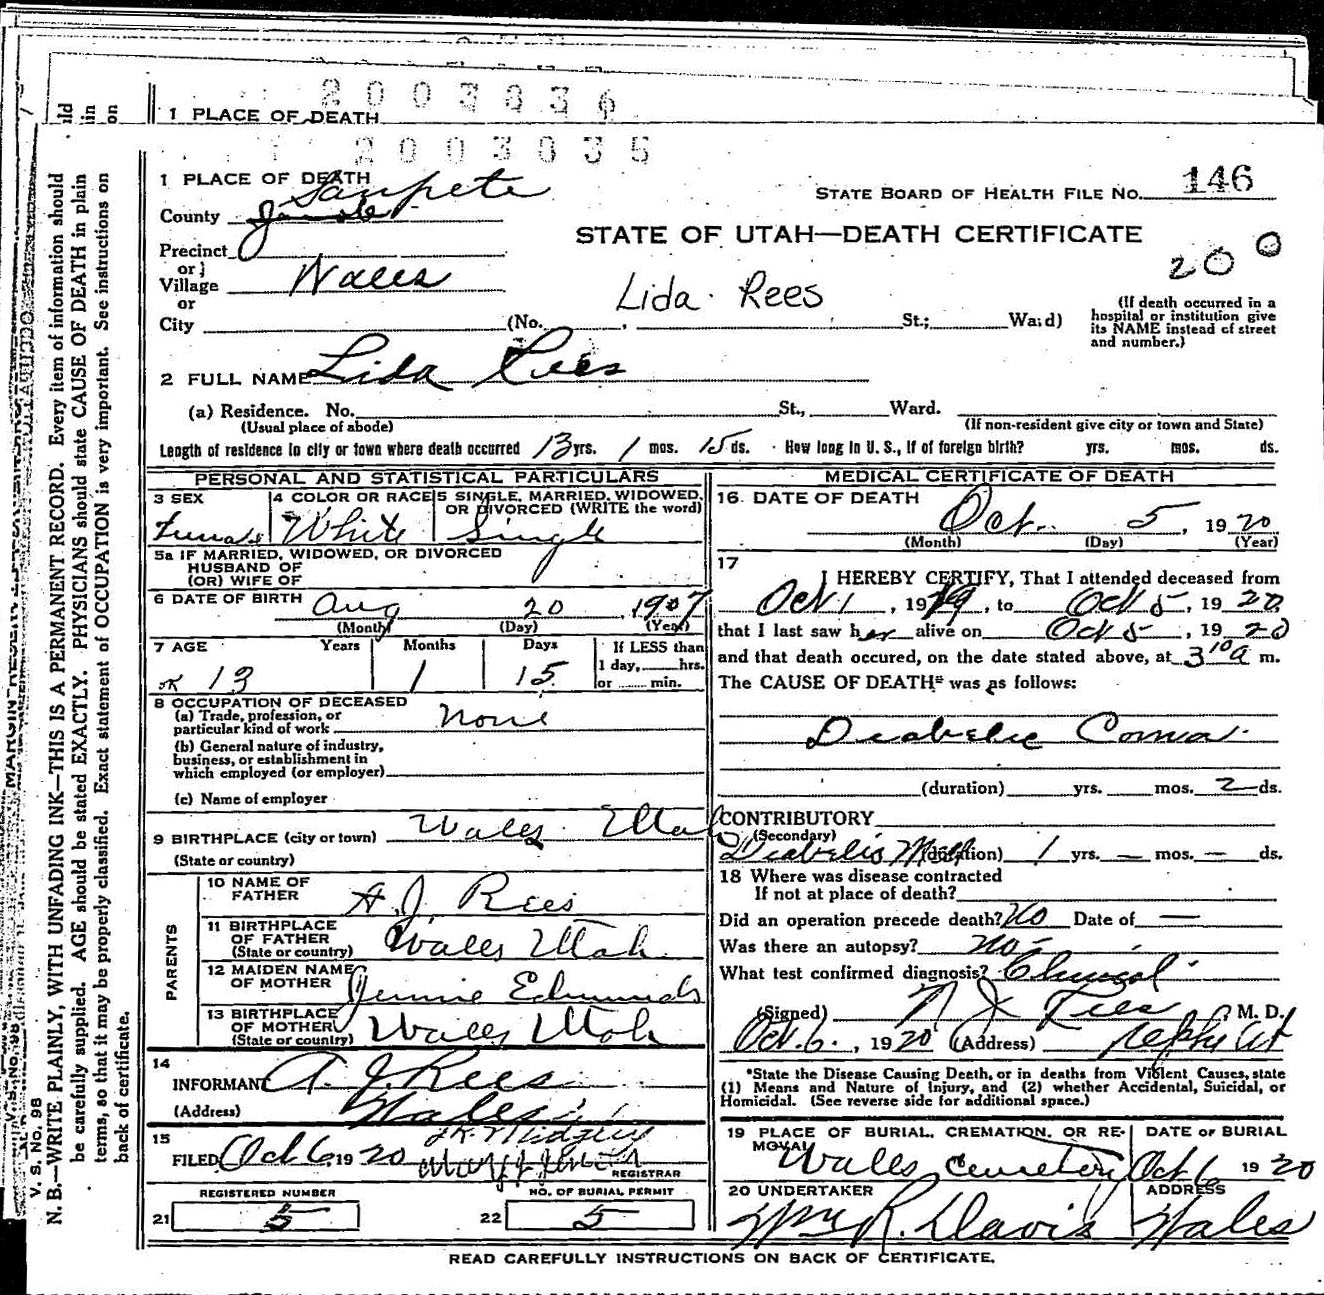 2003634
1 PLACE OF DEATH
2003635
1 PLACE OF DEATH
Sanpete
County
STATE BOARD OF HEALTH FILE NO. 146
STATE OF UTAH—DEATH CERTIFICATE
200
Precinct
or
Village Wales
or
City (No. , St.; Ward)
Lida Rees
(If death occurred in a hospital or institution give its NAME instead of street and number.)
2 FULL NAME Lida Rees
(a) Residence. No. St., Ward.
(Usual place of abode) (If non-resident give city or town and State)
Length of residence in city or town where death occurred 13 yrs. 1 mos. 15 ds. How long in U. S., if of foreign birth? yrs. mos. ds.
PERSONAL AND STATISTICAL PARTICULARS
3 SEX Female
4 COLOR OR RACE White
5 SINGLE, MARRIED, WIDOWED, OR DIVORCED (WRITE the word) Single
5a IF MARRIED, WIDOWED, OR DIVORCED
HUSBAND OF
(OR) WIFE OF
6 DATE OF BIRTH Aug 20, 1907
(Month) (Day) (Year)
7 AGE Years Months Days If LESS than
1 day, hrs.
or min.
OK 13 1 15
8 OCCUPATION OF DECEASED
(a) Trade, profession, or
particular kind of work none
(b) General nature of industry,
business, or establishment in
which employed (or employer)
(c) Name of employer
9 BIRTHPLACE (city or town) Wales Utah
(State or country)
PARENTS
10 NAME OF FATHER A. J. Rees
11 BIRTHPLACE OF FATHER (State or country) Wales Utah
12 MAIDEN NAME OF MOTHER Jennie Edmunds
13 BIRTHPLACE OF MOTHER (State or country) Wales Utah
14
INFORMANT A. J. Rees
(Address) Wales
15
FILED Oct 6, 1920
REGISTRAR
REGISTERED NUMBER
21 5
NO. OF BURIAL PERMIT
22 5
MEDICAL CERTIFICATE OF DEATH
16 DATE OF DEATH Oct. 5, 1920
(Month) (Day) (Year)
17
I HEREBY CERTIFY, That I attended deceased from
Oct 1, 1919, to Oct 5, 1920
that I last saw her alive on Oct 5, 1920
and that death occured, on the date stated above, at 3 10 a m.
The CAUSE OF DEATH* was as follows:
Diabetic Coma
(duration) yrs. mos. 2 ds.
CONTRIBUTORY
(Secondary)
Diabetis Mell (duration) 1 yrs. — mos. — ds.
18 Where was disease contracted
If not at place of death?
Did an operation precede death? No Date of —
Was there an autopsy? No
What test confirmed diagnosis? Clinical
(Signed) Rees M. D.
Oct. 6, 1920 (Address) Nephi Ut
*State the Disease Causing Death, or in deaths from Violent Causes, state
(1) Means and Nature of Injury, and (2) whether Accidental, Suicidal, or
Homicidal. (See reverse side for additional space.)
19 PLACE OF BURIAL, CREMATION, OR REMOVAL Wales Cemetery
DATE OF BURIAL Oct 6 1920
20 UNDERTAKER Wm R. Davis
ADDRESS Wales
READ CAREFULLY INSTRUCTIONS ON BACK OF CERTIFICATE.
V. S. No. 98
N. B.—WRITE PLAINLY, WITH UNFADING INK—THIS IS A PERMANENT RECORD. Every item of information should
be carefully supplied. AGE should be stated EXACTLY. PHYSICIANS should state CAUSE OF DEATH in plain
terms, so that it may be properly classified. Exact statement of OCCUPATION is very important. See instructions on
back of certificate.